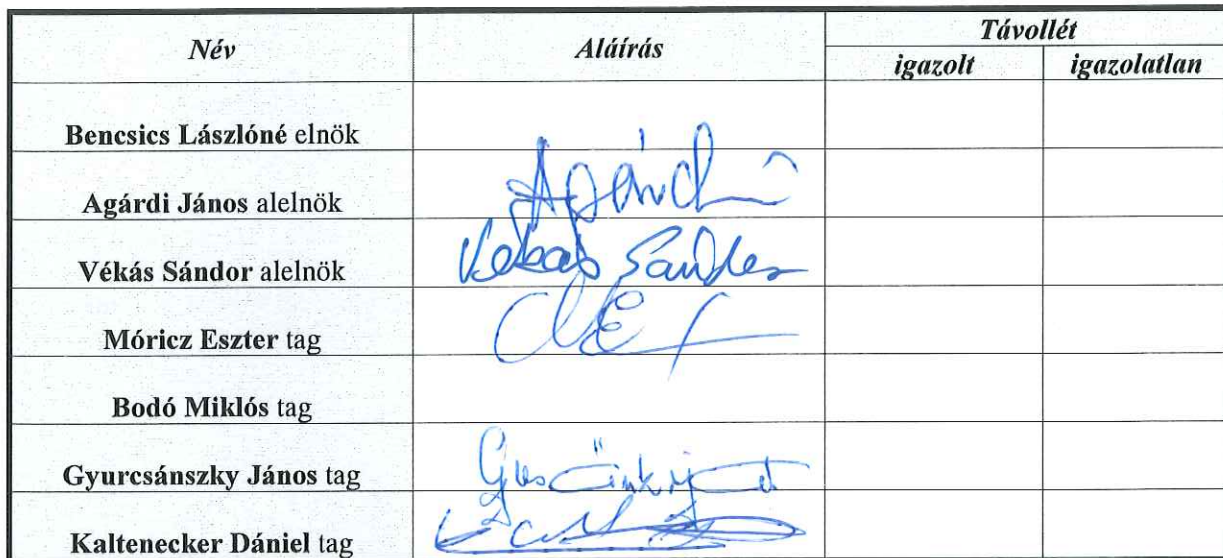 Név Aláírás Távollét
igazolt igazolatlan
Bencsics Lászlóné elnök
Agárdi János alelnök Agárdi
Vékás Sándor alelnök Vékás Sándor
Móricz Eszter tag
Bodó Miklós tag
Gyurcsánszky János tag
Kaltenecker Dániel tag